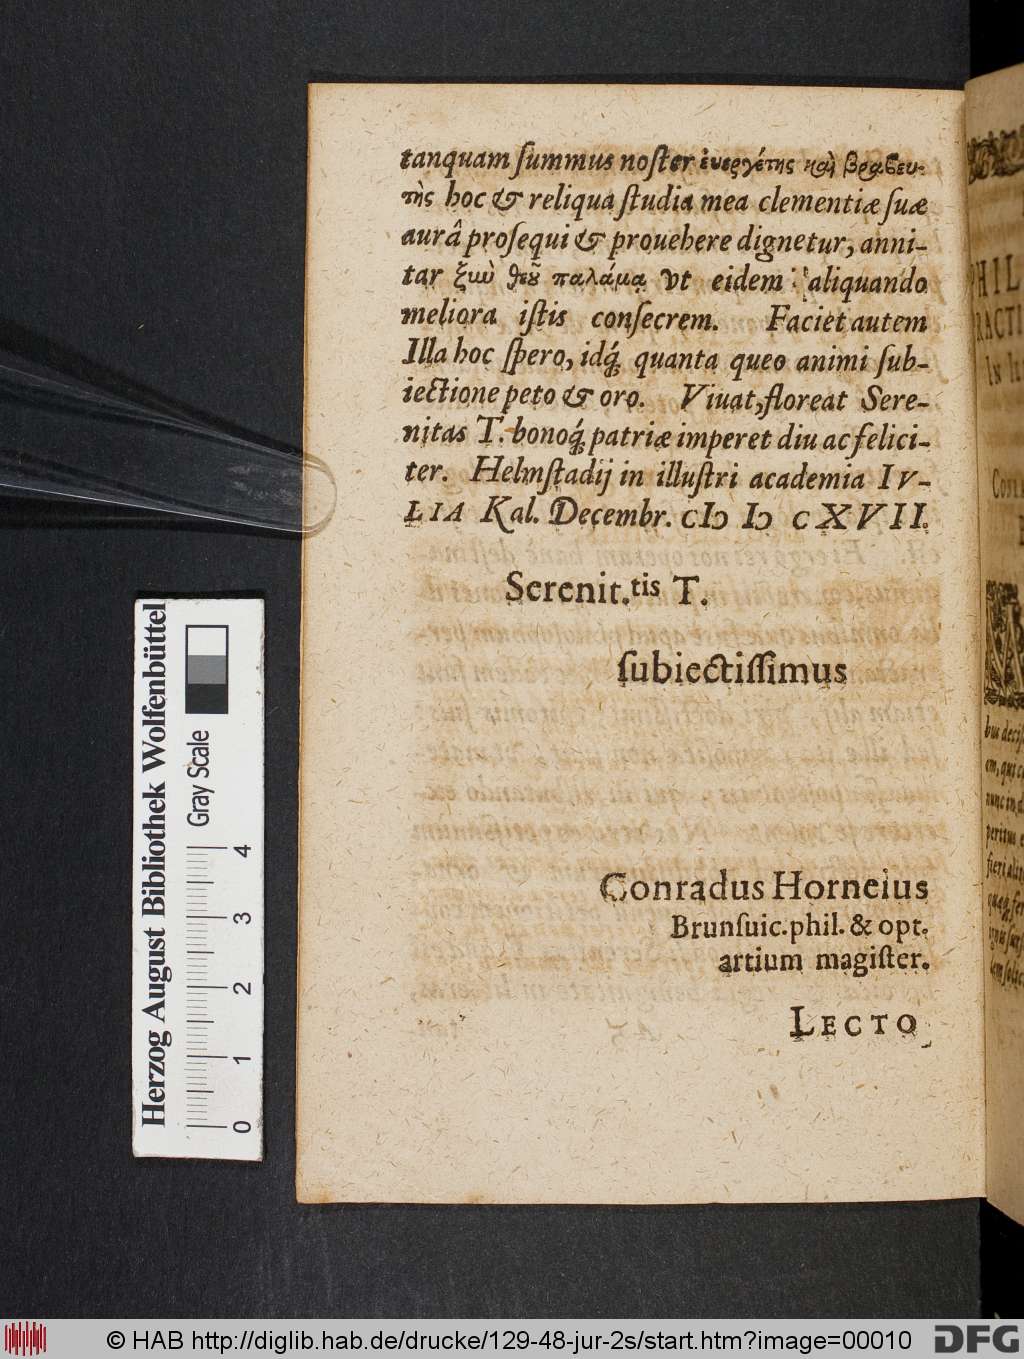 tanquam ſummus noſter ἐυεργέτης καὶ βραβευ-
τὴς hoc & reliqua ſtudia mea clementiæ ſuæ
aurâ proſequi & prouehere dignetur, anni-
tar ξιωὼ θεοῦ παλάμα vt eidem aliquando
meliora iſtis conſecrem. Faciet autem
Illa hoc ſpero, idq́; quanta queo animi ſub-
iectione peto & oro. Viuat, floreat Sere-
nitas T. bonoq́; patriæ imperet diu ac felici-
ter. Helmſtadij in illuſtri academia IV-
LIA Kal. Decembr. cIↄ Iↄ cXVII.
Serenit.tis T.
ſubiectiſſimus
Conradus Horneius
Brunſuic. phil. & opt.
artium magiſter.
LECTO
PHIL
RACTI
Herzog August Bibliothek Wolfenbüttel
Gray Scale
0 1 2 3 4
© HAB http://diglib.hab.de/drucke/129-48-jur-2s/start.htm?image=00010
DFG